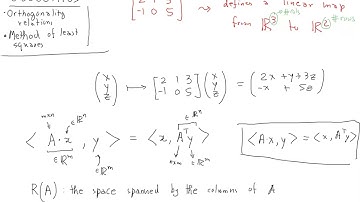 • Orthogonality
relations
• Method of least
squares
[2 1 3
-1 0 5] → defines a linear map
from ℝ³ to ℝ² #rows
(x
y
z) ↦ [2 1 3
-1 0 5] (x
y
z) = (2x + y + 3z
-x + 5z)
m×n ∈ℝⁿ ∈ℝⁿ
⟨ A·x , y ⟩ = ⟨ x, Aᵀy ⟩ ⟨A·x, y⟩ = ⟨x, Aᵀy⟩
∈ℝᵐ ∈ℝᵐ n×m ∈ℝᵐ
R(A) : the space spanned by the columns of A